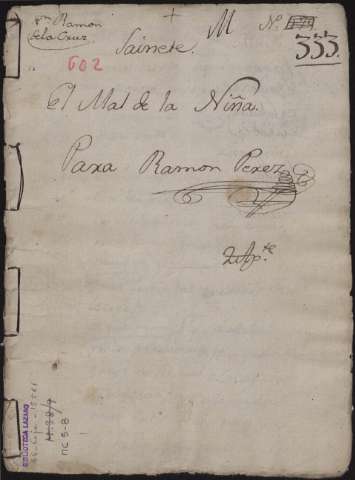 Dn Ramon
de la Cruz
+
M
No.
333.
Sainete.
602
El Mal de la Niña.
Para Ramon Perez
2 Ap.te
BIBLIOTECA LAZARO
M-28/7
MC 5-8